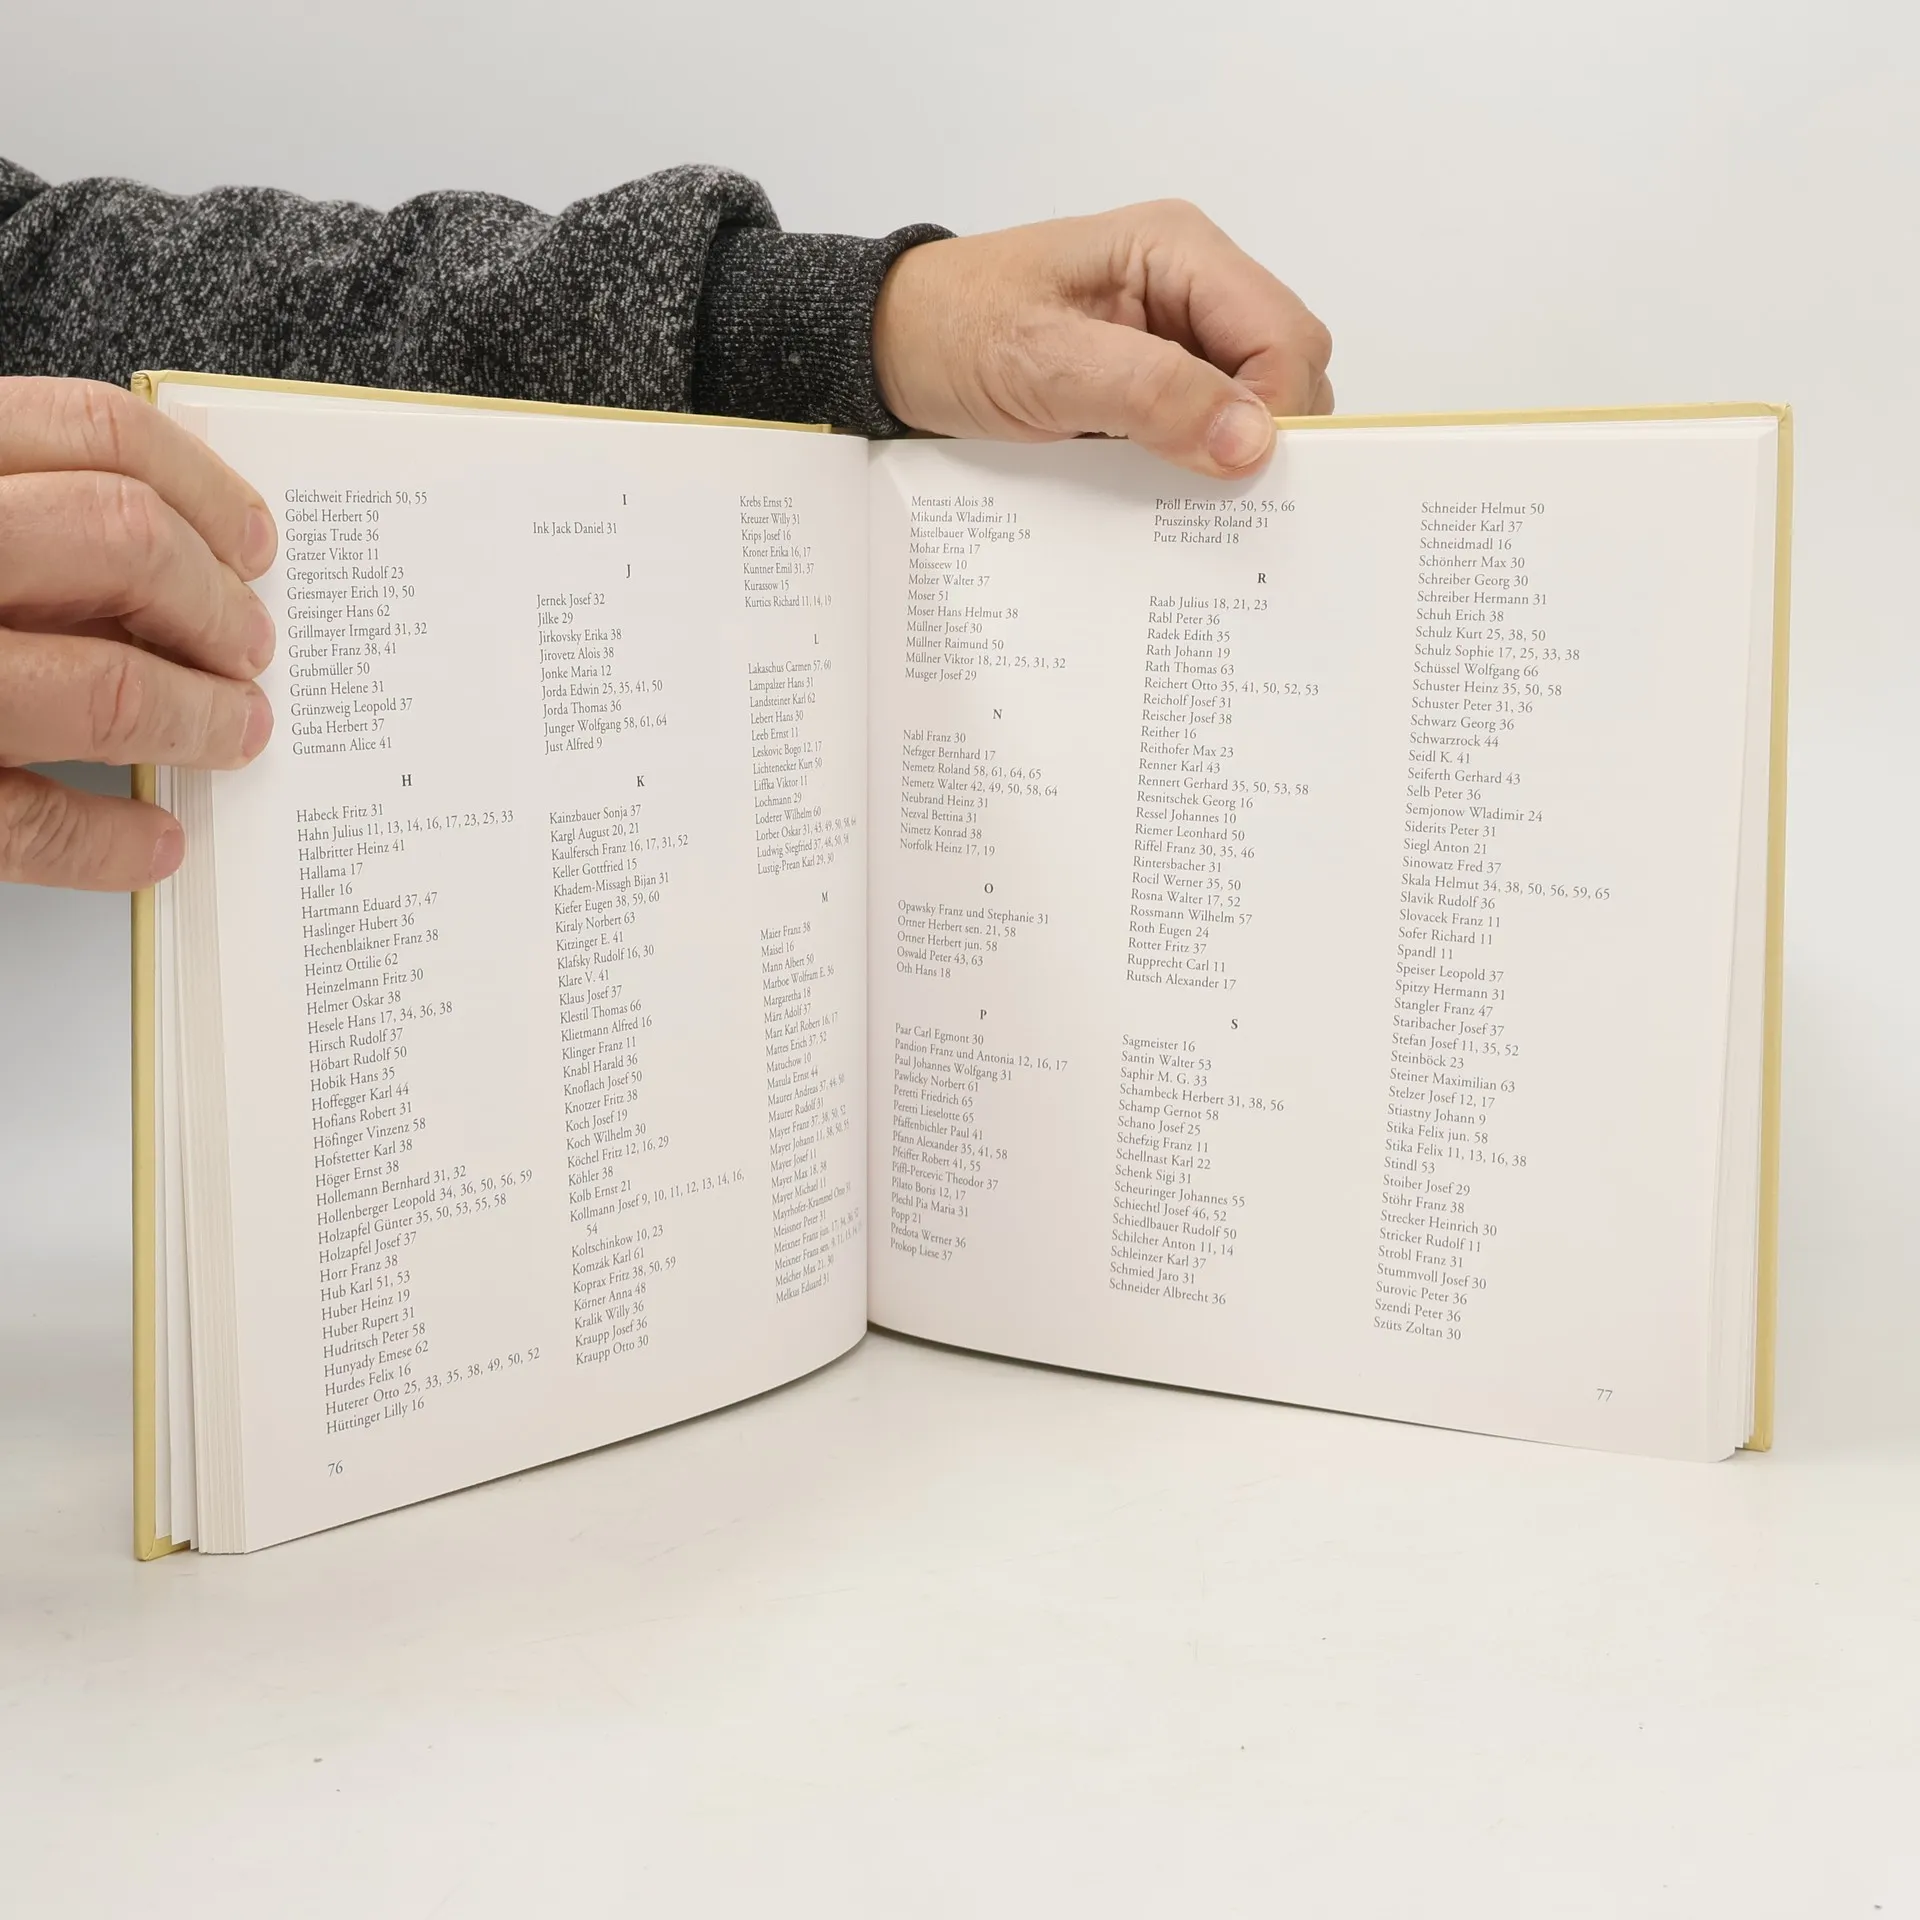 Gleichweit Friedrich 50, 55
Göbel Herbert 50
Gorgias Trude 36
Gratzer Viktor 11
Gregoritsch Rudolf 23
Griesmayer Erich 19, 50
Greisinger Hans 62
Grillmayer Irmgard 31, 32
Gruber Franz 38, 41
Grubmüller 50
Grünn Helene 31
Grünzweig Leopold 37
Guba Herbert 37
Gutmann Alice 41
H
Habeck Fritz 31
Hahn Julius 11, 13, 14, 16, 17, 23, 25, 33
Halbritter Heinz 41
Hallama 17
Haller 16
Hartmann Eduard 37, 47
Haslinger Hubert 36
Hechenblaikner Franz 38
Heintz Ottilie 62
Heinzelmann Fritz 30
Helmer Oskar 38
Hesele Hans 17, 34, 36, 38
Hirsch Rudolf 37
Höbart Rudolf 50
Hobik Hans 35
Hoffegger Karl 44
Hofians Robert 31
Höfinger Vinzenz 58
Hofstetter Karl 38
Höger Ernst 38
Hollemann Bernhard 31, 32
Hollenberger Leopold 34, 36, 50, 56, 59
Holzapfel Günter 35, 50, 53, 55, 58
Holzapfel Josef 37
Horr Franz 38
Hub Karl 51, 53
Huber Heinz 19
Huber Rupert 31
Hudritsch Peter 58
Hunyady Emese 62
Hurdes Felix 16
Huterer Otto 25, 33, 35, 38, 49, 50, 52
Hüttinger Lilly 16
76
I
Ink Jack Daniel 31
J
Jernek Josef 32
Jilke 29
Jirkovsky Erika 38
Jirovetz Alois 38
Jonke Maria 12
Jorda Edwin 25, 35, 41, 50
Jorda Thomas 36
Junger Wolfgang 58, 61, 64
Just Alfred 9
K
Kainzbauer Sonja 37
Kargl August 20, 21
Kaulfersch Franz 16, 17, 31, 52
Keller Gottfried 15
Khadem-Missagh Bijan 31
Kiefer Eugen 38, 59, 60
Kiraly Norbert 63
Kitzinger E. 41
Klafsky Rudolf 16, 30
Klare V. 41
Klaus Josef 37
Klestil Thomas 66
Klietmann Alfred 16
Klinger Franz 11
Knabl Harald 36
Knoflach Josef 50
Knotzer Fritz 38
Koch Josef 19
Koch Wilhelm 30
Köchel Fritz 12, 16, 29
Köhler 38
Kolb Ernst 21
Kollmann Josef 9, 10, 11, 12, 13, 14, 16,
54
Koltschinkow 10, 23
Komzák Karl 61
Koprax Fritz 38, 50, 59
Körner Anna 48
Kralik Willy 36
Kraupp Josef 36
Kraupp Otto 30
Krebs Ernst 52
Kreuzer Willy 31
Krips Josef 16
Kroner Erika 16, 17
Kuntner Emil 31, 37
Kurassow 15
Kurtics Richard 11, 14, 19
L
Lakaschus Carmen 57, 60
Lampalzer Hans 31
Landsteiner Karl 62
Lebert Hans 30
Leeb Ernst 11
Leskovic Bogo 12, 17
Lichtenecker Kurt 50
Liffka Viktor 11
Lochmann 29
Loderer Wilhelm 60
Lorber Oskar 31, 43, 49, 50, 58, 64
Ludwig Siegfried 37, 48, 50, 56
Lustig-Prean Karl 29, 30
M
Maier Franz 38
Maisel 16
Mann Albert 50
Marboe Wolfram E. 36
Margaretha 18
März Adolf 37
Marz Karl Robert 16, 17
Mattes Erich 37, 52
Matuchow 10
Matula Ernst 44
Maurer Andreas 37, 44, 50
Maurer Rudolf 31
Mayer Franz 37, 38, 50, 52
Mayer Johann 11, 38, 50, 55
Mayer Josef 11
Mayer Max 18, 38
Mayer Michael 11
Mayrhofer-Krammel Otto 31
Meissner Peter 31
Meixner Franz jun. 17, 34, 36, 52
Meixner Franz sen. 9, 11, 13, 14,
Melcher Max 21, 30
Melkus Eduard 31
Mentasti Alois 38
Mikunda Wladimir 11
Mistelbauer Wolfgang 58
Mohar Erna 17
Moisseew 10
Molzer Walter 37
Moser 51
Moser Hans Helmut 38
Müllner Josef 30
Müllner Raimund 50
Müllner Viktor 18, 21, 25, 31, 32
Musger Josef 29
N
Nabl Franz 30
Nefzger Bernhard 17
Nemetz Roland 58, 61, 64, 65
Nemetz Walter 42, 49, 50, 58, 64
Neubrand Heinz 31
Nezval Bettina 31
Nimetz Konrad 38
Norfolk Heinz 17, 19
O
Opawsky Franz und Stephanie 31
Ortner Herbert sen. 21, 58
Ortner Herbert jun. 58
Oswald Peter 43, 63
Oth Hans 18
P
Paar Carl Egmont 30
Pandion Franz und Antonia 12, 16, 17
Paul Johannes Wolfgang 31
Pawlicky Norbert 61
Peretti Friedrich 65
Peretti Lieselotte 65
Pfaffenbichler Paul 41
Pfann Alexander 35, 41, 58
Pfeiffer Robert 41, 55
Piffl-Percevic Theodor 37
Pilato Boris 12, 17
Plechl Pia Maria 31
Popp 21
Predota Werner 36
Prokop Liese 37
Pröll Erwin 37, 50, 55, 66
Pruszinsky Roland 31
Putz Richard 18
R
Raab Julius 18, 21, 23
Rabl Peter 36
Radek Edith 35
Rath Johann 19
Rath Thomas 63
Reichert Otto 35, 41, 50, 52, 53
Reicholf Josef 31
Reischer Josef 38
Reither 16
Reithofer Max 23
Renner Karl 43
Rennert Gerhard 35, 50, 53, 58
Resnitschek Georg 16
Ressel Johannes 10
Riemer Leonhard 50
Riffel Franz 30, 35, 46
Rintersbacher 31
Rocil Werner 35, 50
Rosna Walter 17, 52
Rossmann Wilhelm 57
Roth Eugen 24
Rotter Fritz 37
Rupprecht Carl 11
Rutsch Alexander 17
S
Sagmeister 16
Santin Walter 53
Saphir M. G. 33
Schambeck Herbert 31, 38, 56
Schamp Gernot 58
Schano Josef 25
Schefzig Franz 11
Schellnast Karl 22
Schenk Sigi 31
Scheuringer Johannes 55
Schiechtl Josef 46, 52
Schiedlbauer Rudolf 50
Schilcher Anton 11, 14
Schleinzer Karl 37
Schmied Jaro 31
Schneider Albrecht 36
Schneider Helmut 50
Schneider Karl 37
Schneidmadl 16
Schönherr Max 30
Schreiber Georg 30
Schreiber Hermann 31
Schuh Erich 38
Schulz Kurt 25, 38, 50
Schulz Sophie 17, 25, 33, 38
Schüssel Wolfgang 66
Schuster Heinz 35, 50, 58
Schuster Peter 31, 36
Schwarz Georg 36
Schwarzrock 44
Seidl K. 41
Seiferth Gerhard 43
Selb Peter 36
Semjonow Wladimir 24
Siderits Peter 31
Siegl Anton 21
Sinowatz Fred 37
Skala Helmut 34, 38, 50, 56, 59, 65
Slavik Rudolf 36
Slovacek Franz 11
Sofer Richard 11
Spandl 11
Speiser Leopold 37
Spitzy Hermann 31
Stangler Franz 47
Staribacher Josef 37
Stefan Josef 11, 35, 52
Steinböck 23
Steiner Maximilian 63
Stelzer Josef 12, 17
Stiastny Johann 9
Stika Felix jun. 58
Stika Felix 11, 13, 16, 38
Stindl 53
Stoiber Josef 29
Stöhr Franz 38
Strecker Heinrich 30
Stricker Rudolf 11
Strobl Franz 31
Stummvoll Josef 30
Surovic Peter 36
Szendi Peter 36
Szüts Zoltan 30
77